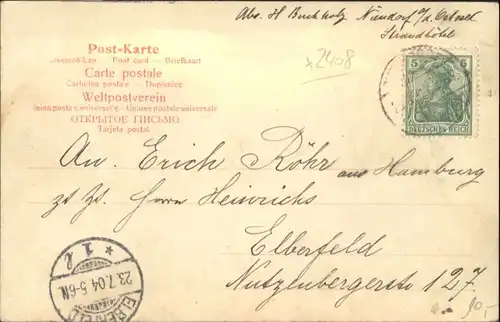 Abs. H Buchholz Niendorf a/d. Ostsee
Strandhôtel
x2408
Post-Karte
Levelező-Lap Post card Briefkaart
Carte postale
Cartolina postale – Dopisnice
Weltpostverein
Union postale universelle – Unione postale universale
ОТКРЫТОЕ ПИСЬМО
Tarjeta postal
5 5
DEUTSCHES REICH
An. Erich Röhr aus Hamburg
zt Zt. Herrn Heinrichs
Elberfeld
Nützenbergerstr 127.
* 1 l
23.7.04 5-6N.
ELBERFELD
90,-